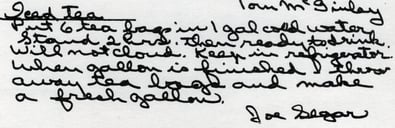 Tom McGinley
Iced Tea
Put 6 tea bags in 1 gal cold water
Stand 2 hrs, then ready to drink.
Will not cloud. Keep in refrigerator.
When gallon is finished I throw
away tea bags and make
a fresh gallon.
Joe Segar